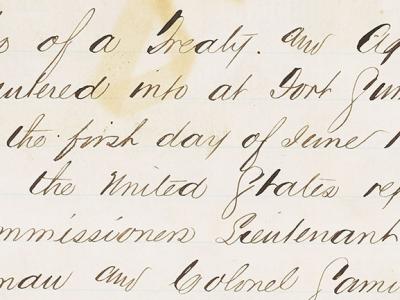 s of a Treaty. and Ag
ntered into at Fort Sum
the first day of June 1
the United States rep
mmissioners Lieutenant
man and Colonel Sam